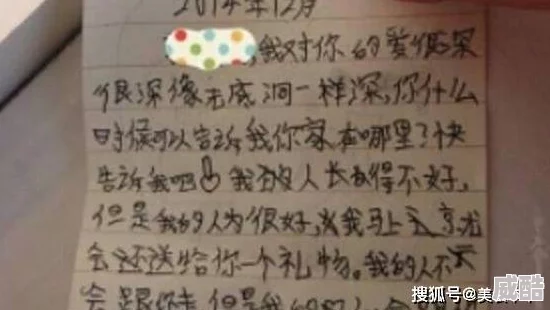 2014年12月
,我对你的爱很深
很深像无底洞一样深,你什么
时候可以告诉我你家在哪里了快
告诉我吧 我的人长得不好,
但是我的人为很好,我马上
会还送给你一个礼物。我的人不
会跟你走 但是我的
搜狐号@美
威酷